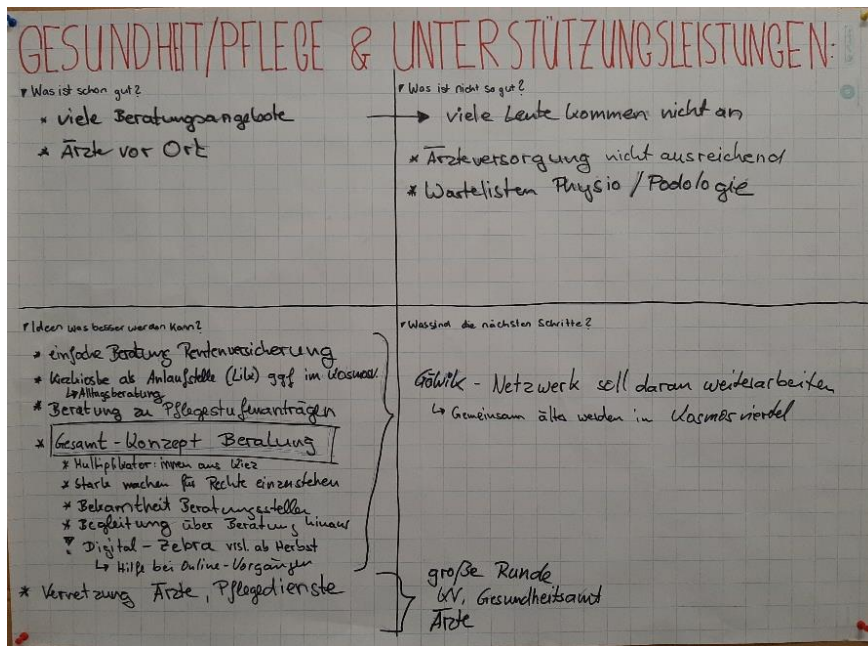 GESUNDHEIT/PFLEGE & UNTERSTÜTZUNGSLEISTUNGEN:
Was ist schon gut?
* viele Beratungsangebote
* Ärzte vor Ort
Was ist nicht so gut?
→ viele Leute kommen nicht an
* Ärzteversorgung nicht ausreichend
* Wartelisten Physio / Podologie
Ideen was besser werden kann?
* einfache Beratung Rentenversicherung
* Kiezkioske als Anlaufstelle (Libe) ggf im Kosmosv.
↳ Alltagsberatung
* Beratung zu Pflegestufenanträgen
* Gesamt-Konzept Beratung
* Multiplikator:innen aus Kiez
* Stark machen für Rechte einzustehen
* Bekanntheit Beratungsstellen
* Begleitung über Beratung hinaus
! Digital-Zebra vrsl. ab Herbst
↳ Hilfe bei Online-Vorgängen
* Vernetzung Ärzte, Pflegedienste
Was sind die nächsten Schritte?
Gäwik - Netzwerk soll daran weiterarbeiten
↳ Gemeinsam älter werden in Kosmosviertel
große Runde
KV, Gesundheitsamt
Ärzte